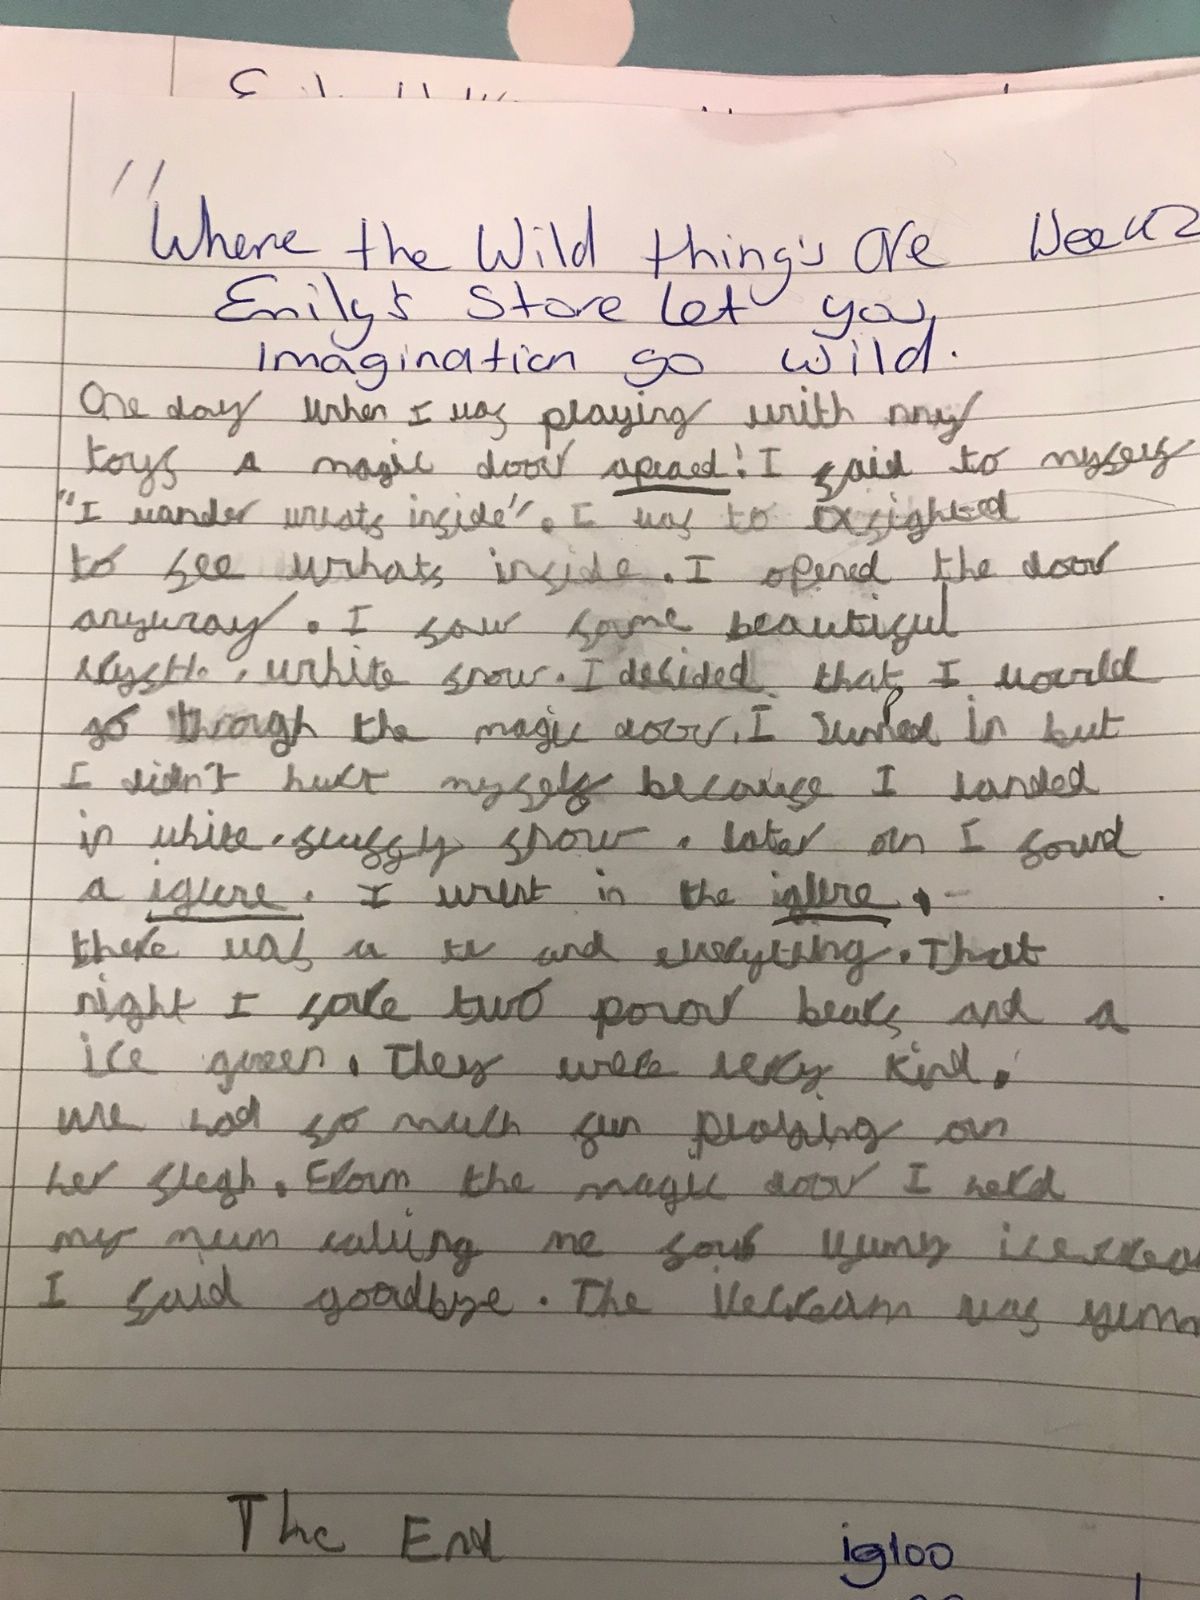 Where the Wild thing's are Week 2
Emily's Store Let you
imagination go wild.
One day when I was playing with my
toys a magic door apeaed! I said to myself
"I wander whats inside". I was to exsighted
to see whats inside. I opened the door
anyway. I saw some beautiful
white snow. I decided that I would
go through the magic door. I Jumped in but
I didn't hurt myself because I landed
in white. fluffy snow. later on I found
a iglure. I went in the iglure.
there was a tv and everything. That
night I sore two poror bears and a
ice queen. They were very kind.
we had so much fun playing on
her slegh. From the magic door I herd
my mum calling me for yumy
I said goodbye. The icecream was
The End
igloo